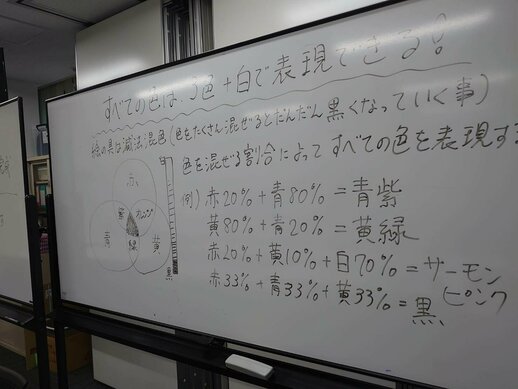 すべての色は、3色+白で表現できる!
絵の具は減法混色(色をたくさん混ぜるとだんだん黒くなっていく事)
色を混ぜる割合によってすべての色を表現する
例) 赤20%+青80%=青紫
黄80%+青20%=黄緑
赤20%+黄10%+白70%=サーモンピンク
赤33%+青33%+黄33%=黒
赤
紫
オレンジ
青
緑
黄
黒